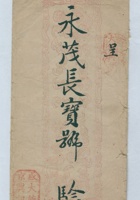 呈
永茂長寶號